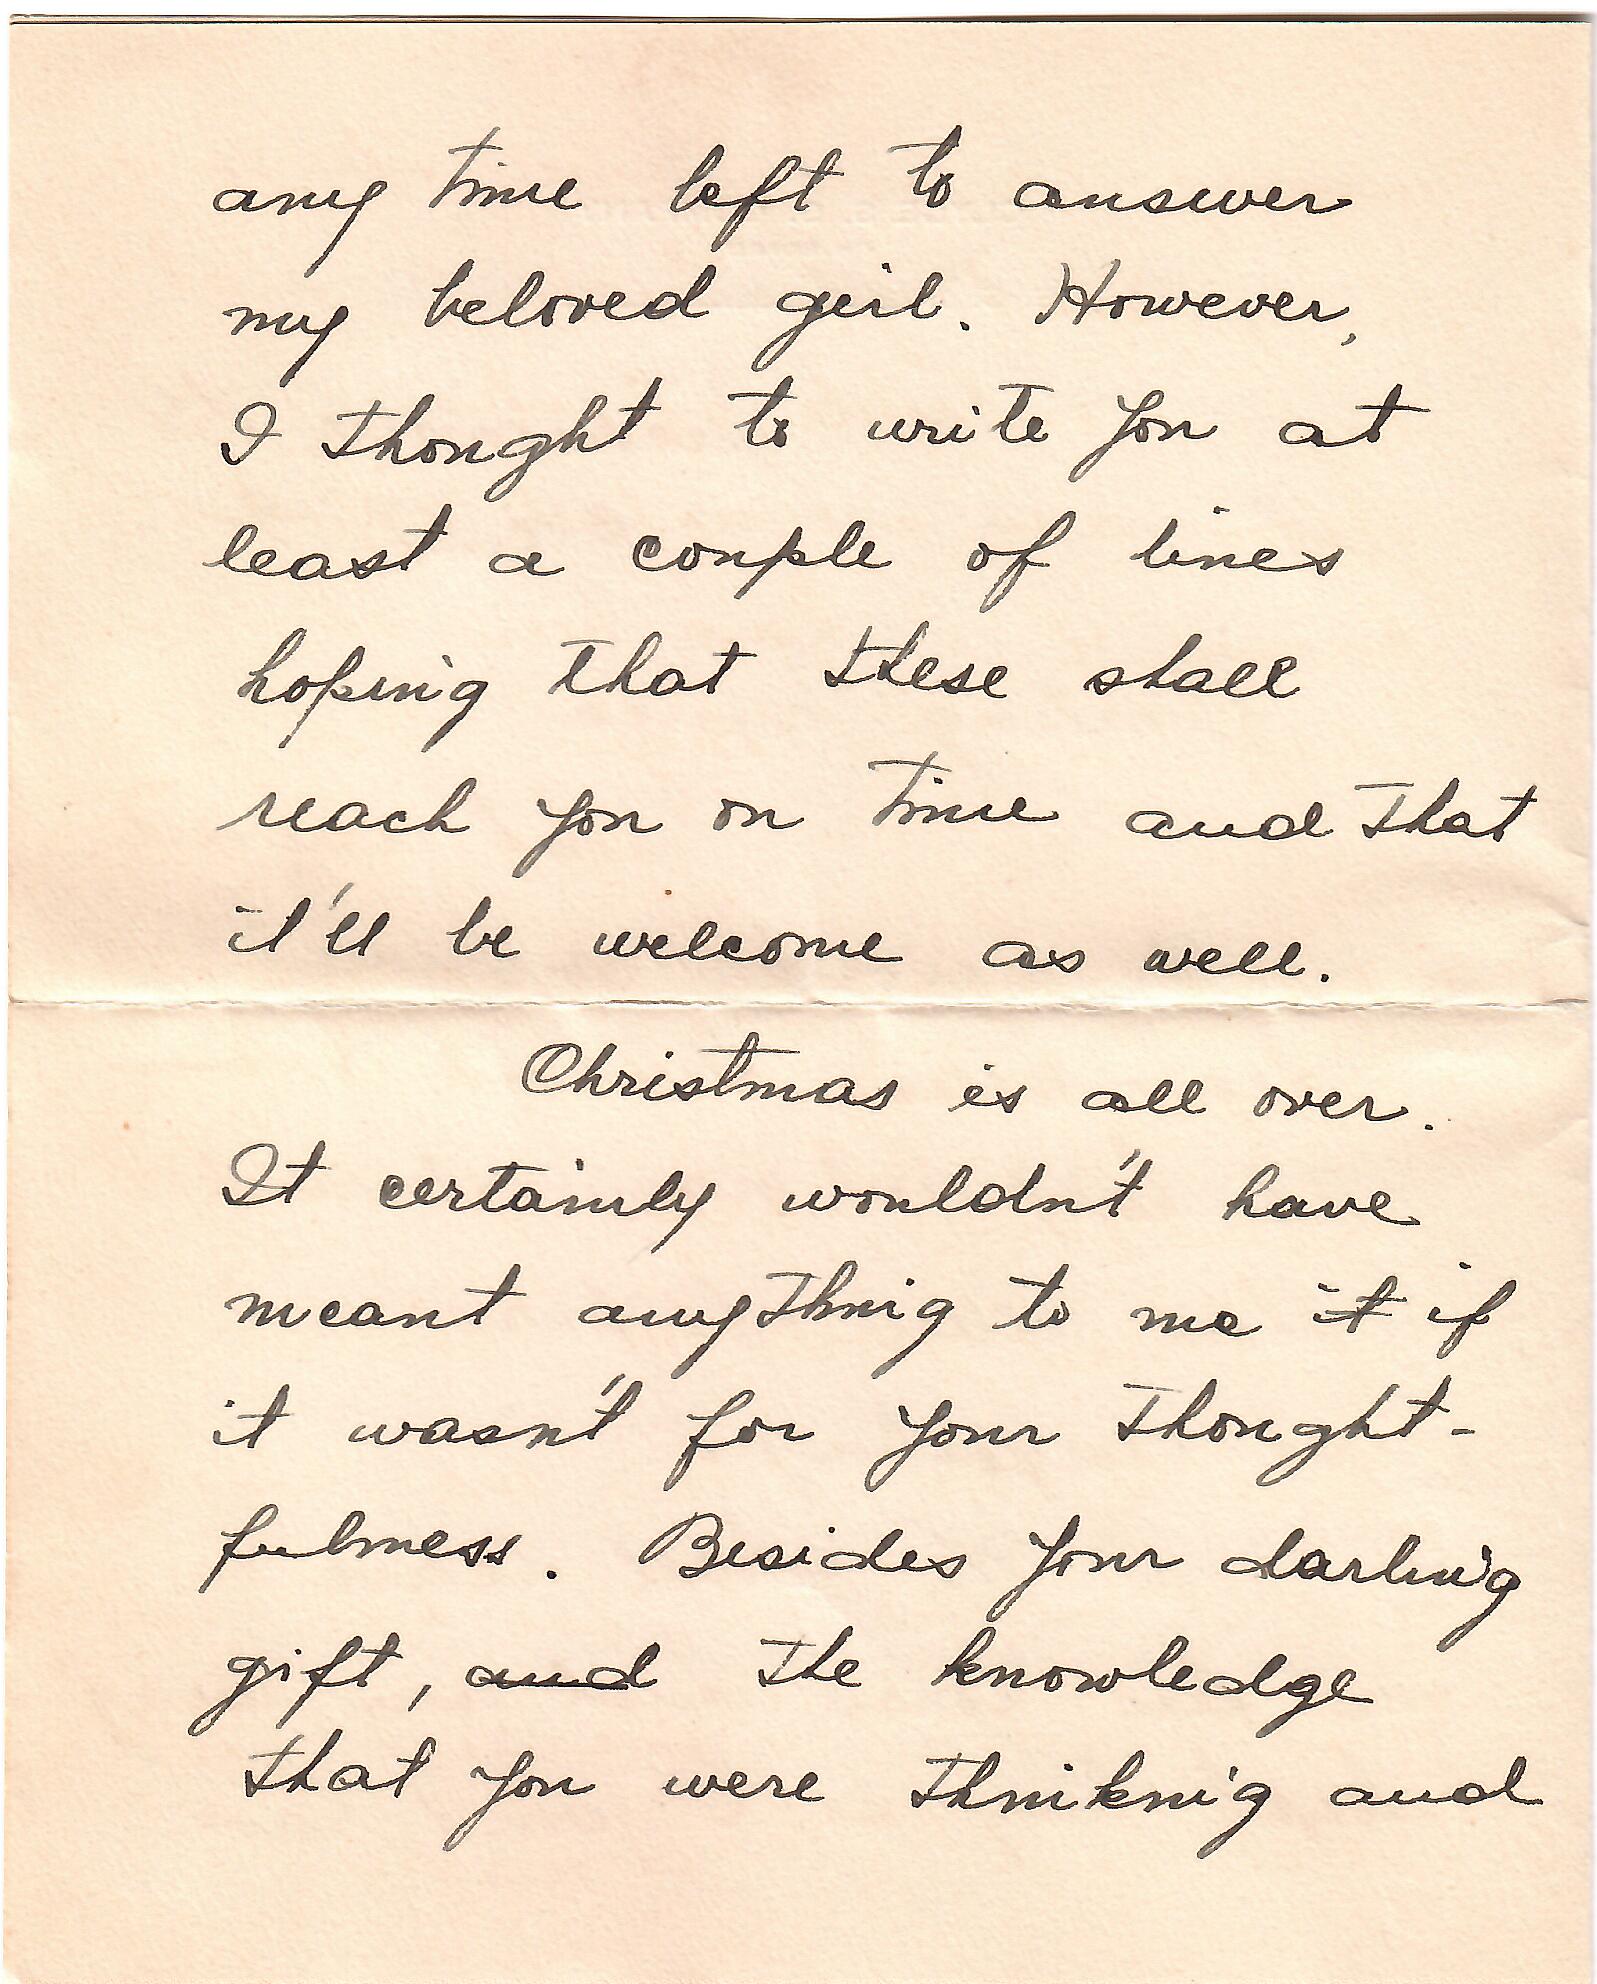 any time left to answer
my beloved girl. However,
I thought to write you at
least a couple of lines
hoping that these shall
reach you on time and that
it'll be welcome as well.
Christmas is all over.
It certainly wouldn't have
meant anything to me it if
it wasn't for your thought-
fulness. Besides your darling
gift, and the knowledge
that you were thinking and